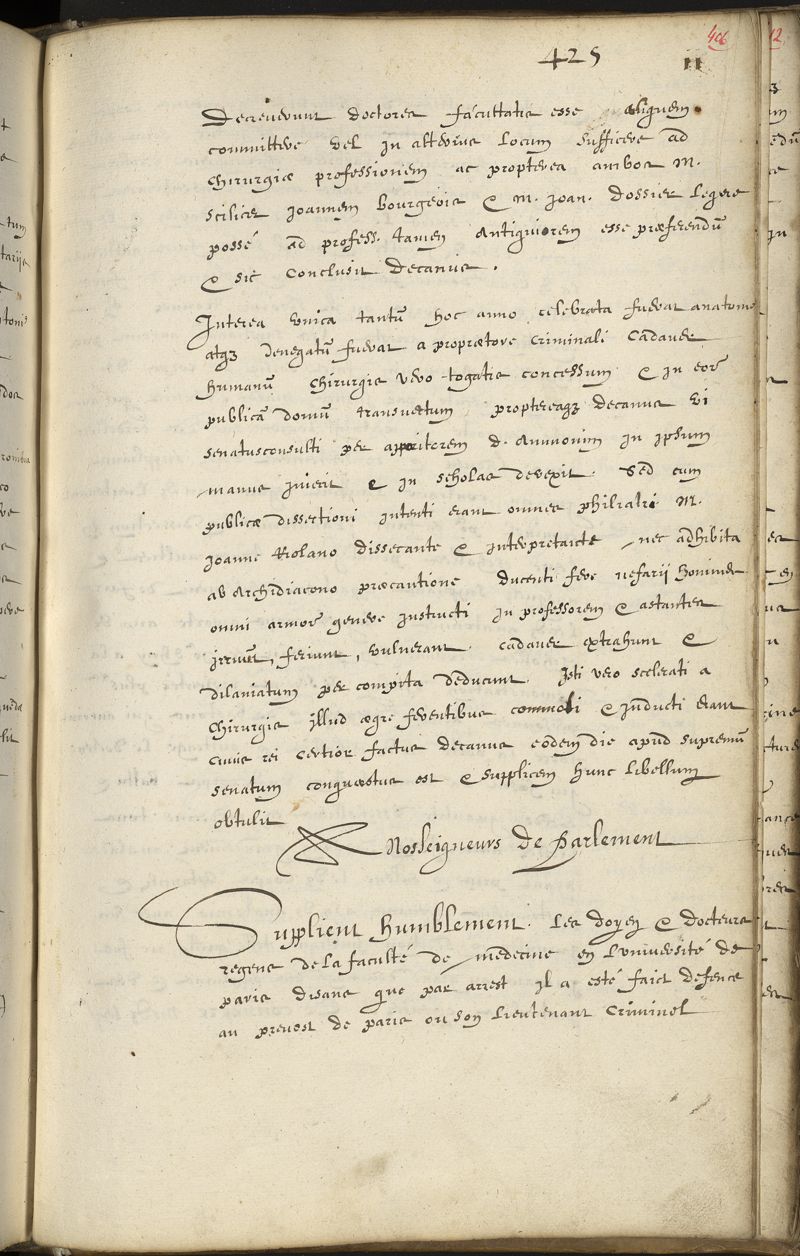 406
425
11
Decreverunt doctores facultatis esse aliquem
committere vel in alterius locum sufficere ad
chirurgiæ professionem ac propterea ambos M.
scilicet Joannem Bourgeois & M. Joan. Dossier legere
posse ad profess. tamen antiquiorem esse præferendũ
& sic conclusit decanus.
Interea unica tantũ hoc anno celebrata fuerat anatome
atqȝ denegatũ fuerat a proprætore criminali cadaver
humanũ chirurgis vero togatis concessum & in eorũ
publicã domũ transvectum proptereaqȝ decanus vi
senatusconsulti per apparitorem d. in ipsum
manus iniecit & in scholas devexit. Sed cum
publicæ dissectioni intenti erant omnes philiatri M.
Joanne Riolano dissecante & interpretante nec adhibita
ab Archidiacono præcautione ducenti fere nefarii homines
omni armorũ genere instructi in professorem & astantes
irruũt, feriunt, vulnerant. cadaver extrahunt &
dilaniatum per compita deducunt. Isti vero scelerati a
chirurgis illud ægre ferentibus commoti & inducti erant
cuius rei certior factus decanus eodem die apud supremũ
senatum conquæstus est & supplicem hunc libellum
obtulit
A Nosseigneurs de Parlement
Supplient humblement. Les doyen & docteurs
regens de la faculté de medecine en l'université de
paris disans que par arrest il a esté faict defence
au prevost de paris ou son lieutenant criminel